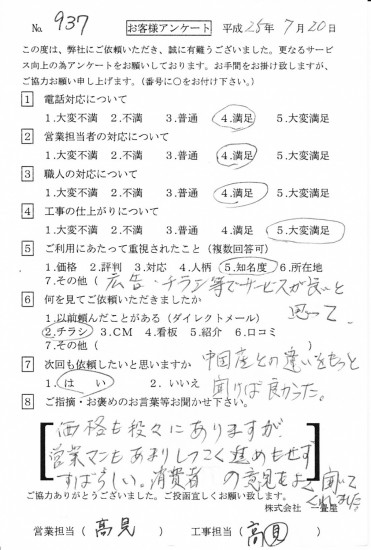 No. 937 お客様アンケート 平成25年7月20日
この度は、弊社にご依頼いただき、誠に有難うございました。更なるサービ
ス向上の為アンケートをお願いしております。お手間をお掛け致しますが、
ご協力お願い申し上げます。(番号に○をお付け下さい。)
1 電話対応について
1.大変不満 2.不満 3.普通 4.満足 5.大変満足
2 営業担当者の対応について
1.大変不満 2.不満 3.普通 4.満足 5.大変満足
3 職人の対応について
1.大変不満 2.不満 3.普通 4.満足 5.大変満足
4 工事の仕上がりについて
1.大変不満 2.不満 3.普通 4.満足 5.大変満足
5 ご利用にあたって重視されたこと(複数回答可)
1.価格 2.評判 3.対応 4.人柄 5.知名度 6.所在地
7.その他(広告・チラシ等でサービスが良いと
思って、
6 何を見てご依頼いただきましたか
1.以前頼んだことがある(ダイレクトメール)
2.チラシ 3.CM 4.看板 5.紹介 6.口コミ
7.その他( )
7 次回も依頼したいと思いますか 中国産との違いをもっと
1.はい 2.いいえ 聞けば良かった。
8 ご指摘・お褒めのお言葉等お聞かせ下さい。
価格も段々にありますが
営業マンもあまりしつこく進めもせず
すばらしい。消費者の意見をよく聞いて
くれました
ご協力ありがとうございました。ご投函宜しくお願い致します。
株式会社 一畳屋
営業担当(高見) 工事担当(高見)